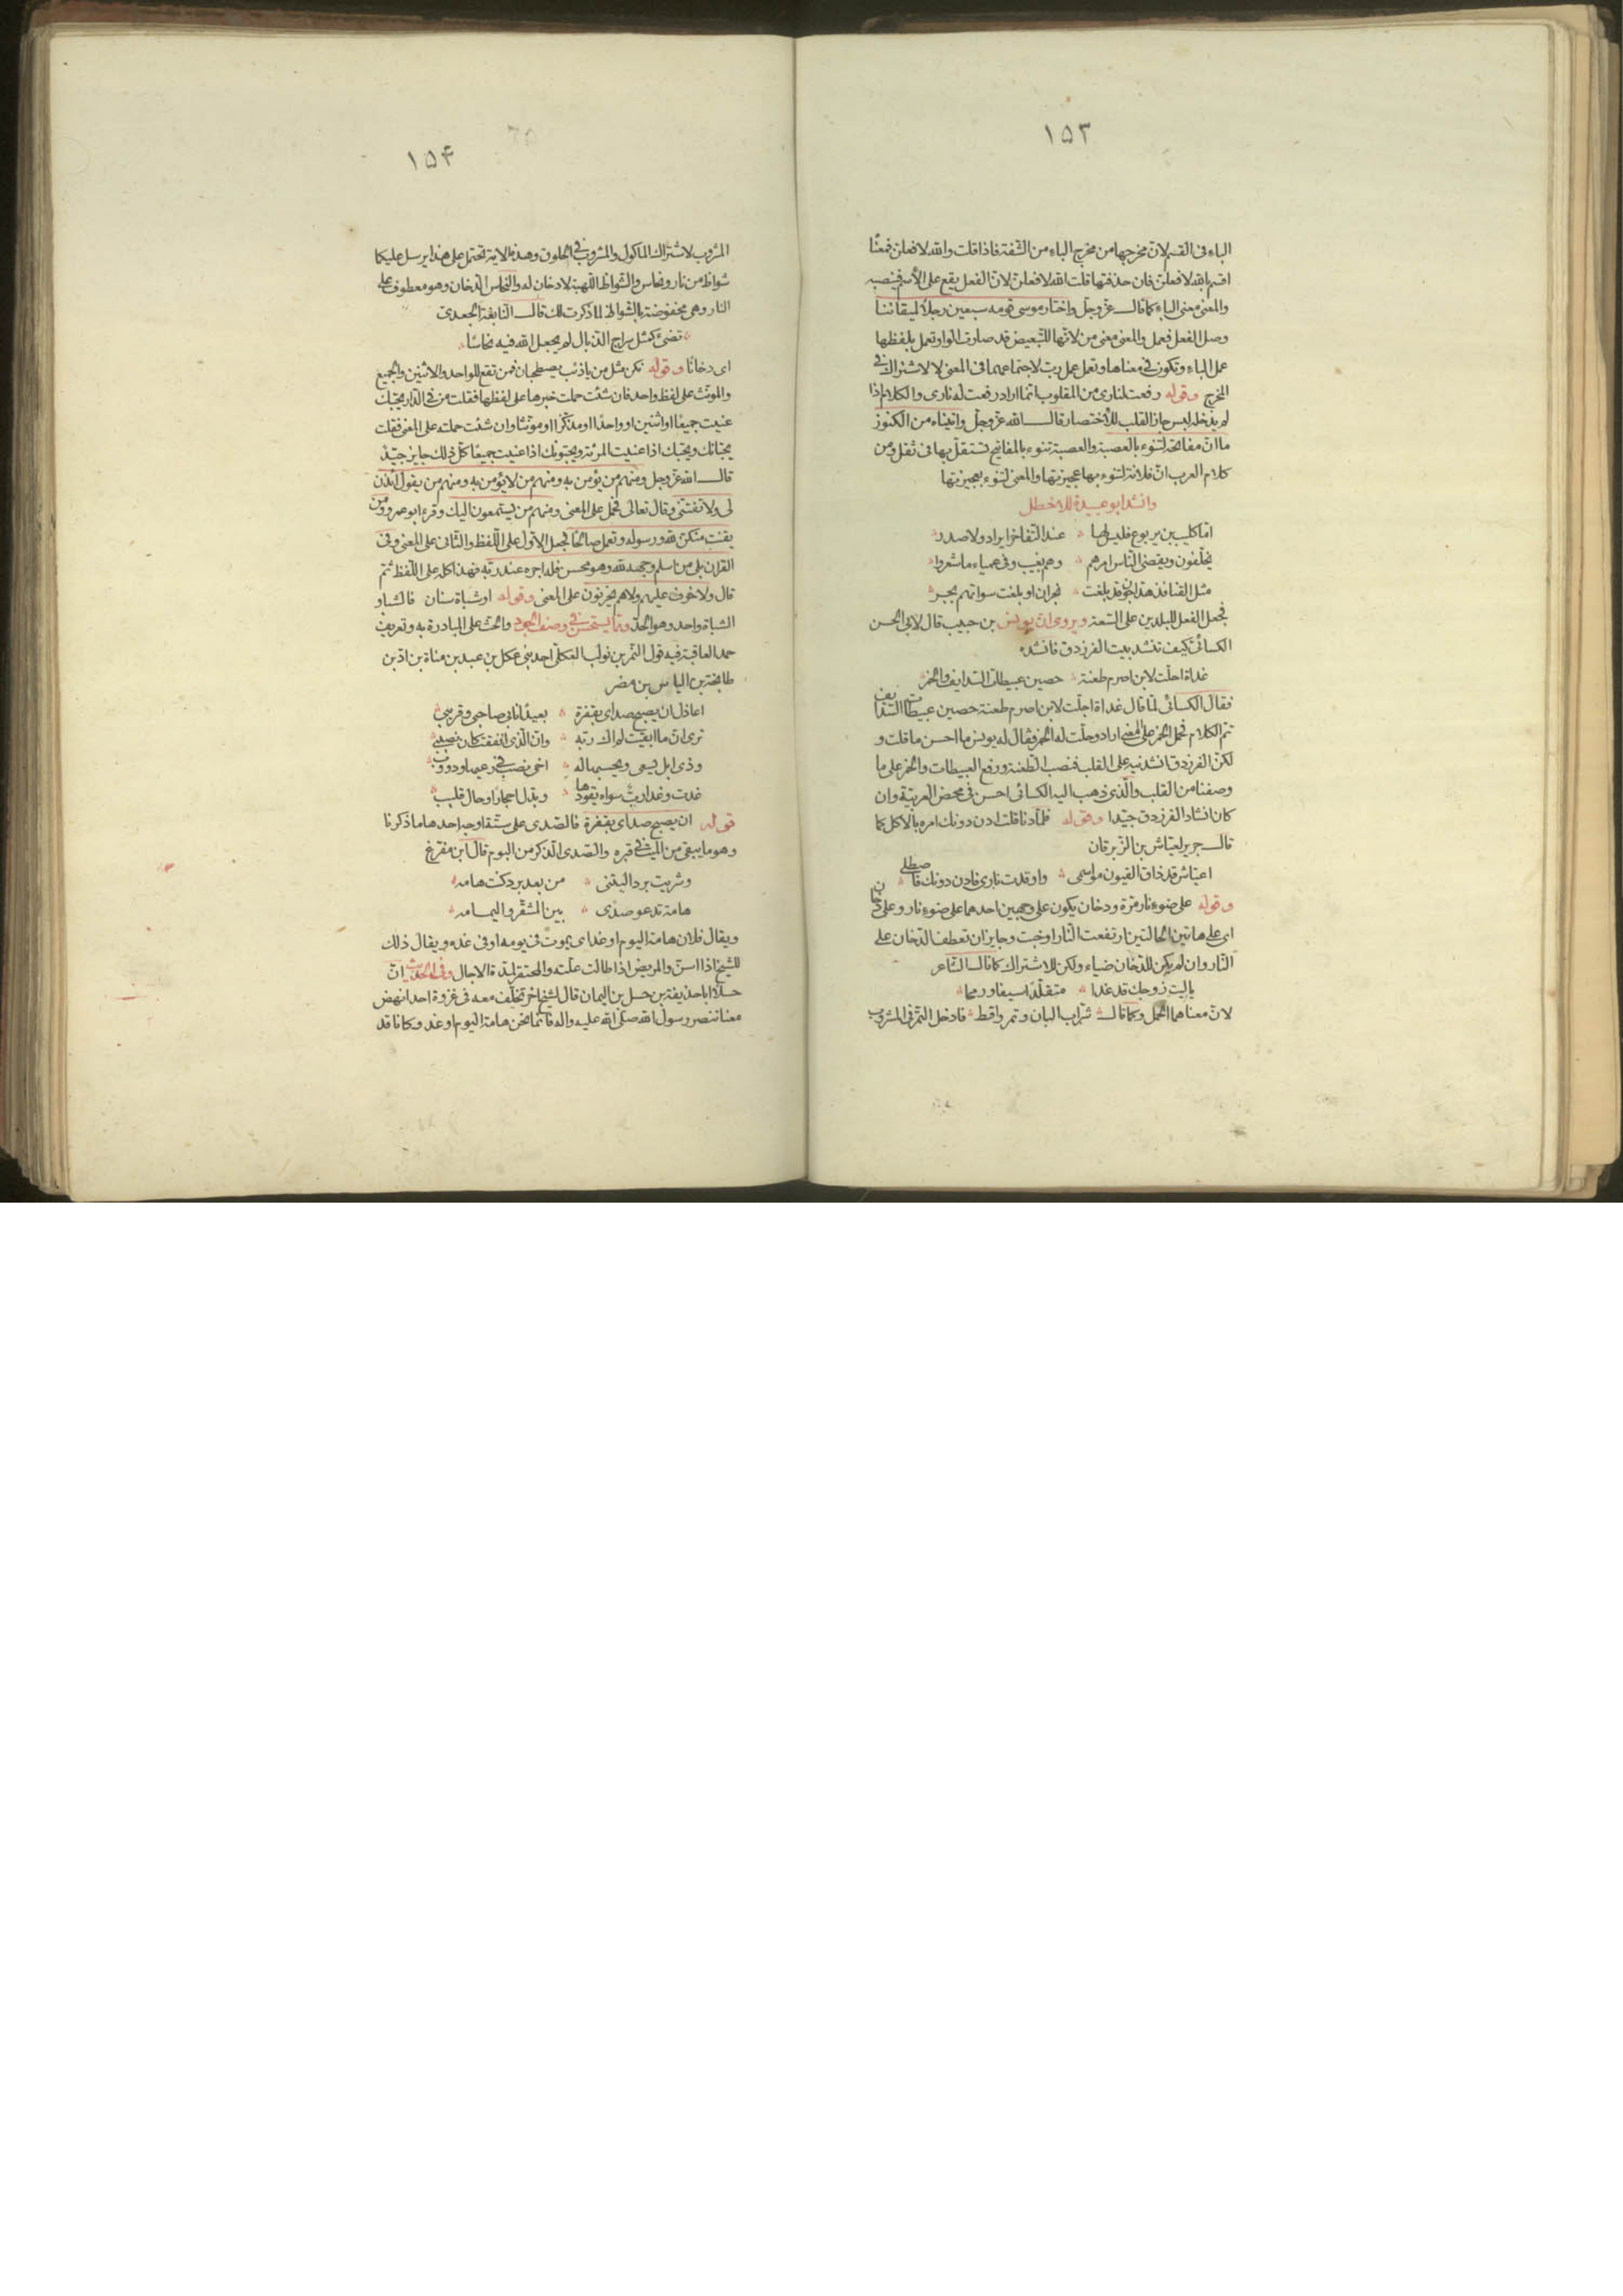 ١٥٣
الباء فى القسم لانّ مخرجها من مخرج الباء من الشّفة فاذا قلت والله لافعلنّ فمعنا
اقسم بالله لافعلنّ فان حذفتها قلت الله لافعلنّ لانّ الفعل يقع على الاسم فينصبه
والمعنى معنى الباء كما قال عزّ وجلّ واختار موسى قومه سبعين رجلاً لميقاتنا
وصل الفعل فعمل والمعنى معنى من لانّها للتّبعيض قد صارت الواو تعمل بلفظها
عمل الباء وتكون فى معناها وتعمل عمل ربّ لاجتماعهما فى المعنى لا لاشتراك فى
المخرج وقوله رفعت لنارى من المقلوب انّما اراد رفعت له نارى والكلام اذا
لم يدخله لبس جاز القلب للاختصار قال الله عزّ وجلّ واتيناه من الكنوز
ما انّ مفاتحه لتنوء بالعصبة والعصبة تنوء بالمفاتيح تستقلّ بها فى ثقل ومن
كلام العرب انّ فلانة لتنوء بها عجيزتها والمعنى لتنوء بعجيزتها
وانشد ابو عبيدة للاخطل
امّا كليب بن يربوع فليس لها عند التّفاخر ايراد ولا صدر
يخلّفون ويقضى النّاس امرهم وهم بغيب وفى عمياء ما شعروا
مثل القنافذ هدّاجون قد بلغت نجران او بلغت سواتهم هجر
فجعل الفعل للبلدين على السّعة ويروى انّ يونس بن حبيب قال لابى الحسن
الكسائىّ كيف تنشد بيت الفرزدق فانشده
غداة احلّت لابن اصرم طعنة حصين عبيطات السّدايف والخمر
فقال الكسائى لمّا قال غداة احلّت لابن اصرم طعنة حصين عبيطات السّدايف
تمّ الكلام فحمل الخمر على المعنى اراد وحلّت له الخمر فقال له يونس ما احسن ما قلت و
لكنّ الفرزدق انشدنيه على القلب فنصب الطّعنة ورفع العبيطات والخمر على ما
وصفنا من القلب والّذى ذهب اليه الكسائى احسن فى محض العربيّة وان
كان انشاد الفرزدق جيّدا وقوله فلمّا دنا قلت ادن دونك امره بالاكل كما
قال جرير لعيّاش بن الزّبرقان
اعيّاش قد ذاق القيون مواسمى واوقدت نارى فادن دونك فاصطلى
وقوله على ضوء نار مرّة ودخان يكون على وجهين احدهما على ضوء نار وعلى دخان
اى على هاتين الحالتين ارتفعت النّار او خبت وجايز ان تعطف الدّخان على
النّار وان لم يكن للدّخان ضياء ولكن للاشتراك كما قال الشّاعر
ياليت زوجك قد غدا متقلّدا سيفا ورمحا
لانّ معناهما الحمل وكما قال شرّاب البان وتمر واقط فادخل التّمر فى المشروب
١٥۴
المشروب لاشتراك الماكول والمشروب فى الحلوق وهذه الاية تحتمل على هذا يرسل عليكما
شواظ من نار ونحاس والشّواظ اللّهبة لا دخان له والنّحاس الدّخان وهو معطوف على
النار وهى مخفوضة بالشواظ لما ذكرت لك قال النّابغة الجعدى
تضىء كمثل سراج الذّبال لم يجعل الله فيه نحاسًا
اى دخانًا وقوله نكن مثل من ياذئب يصطحبان فمن تقع للواحد والاثنين والجميع
والمونّث على لفظ واحد فان شئت حملت خبرها على لفظها فقلت من فى الدّار يحبّك
عنيت جميعًا او اثنين او واحدًا او مذكّرا او مونّثا وان شئت حملته على المعنى فقلت
يحبّانك وتحبّك اذا عنيت المرئة ويحبّونك اذا عنيت جميعًا كلّ ذلك جايز جيّد
قال الله عزّ وجل ومنهم من يؤمن به ومنهم من لا يؤمن به ومنهم من يقول ائذن
لى ولا تفتنّى وقال تعالى فحمل على المعنى ومنهم من يستمعون اليك وقرء ابو عمرو ومن
يقنت منكنّ لله ورسوله وتعمل صالحًا فجعل الاوّل على اللّفظ والثّانى على المعنى وفى
القران بلى من اسلم وجهه لله وهو محسن فله اجره عند ربّه فهذا كله على اللّفظ ثمّ
قال ولا خوف عليهم ولا هم يحزنون على المعنى وقوله او شباة سنان فالشبا و
الشباة واحد وهو الحدّ وممّا يستحسن فى وصف الجود والحث على المبادرة به وتعريف
حمد العاقبة فيه قول النّمر بن تولب العكلىّ احد بنى عكل بن عبد بن مناة بن ادّ بن
طابخة بن الياس بن مضر
اعاذل ان يصبح صداى بقفرة بعيدًا نانى صاحبى وقريبى
ترى انّ ما ابقيت لم اك ربّه وانّ الّذى انفقت كان نصيبى
وذى ابل يسعى ويحسبها له اخى نصب فى رعيها ودووب
غدت وغدا ربّ سواه يقودها وبدّل احجارًا وحال قليب
قوله ان يصبح صداى بقفرة فالصّدى على ستّة اوجه احدها ما ذكرنا
وهو ما يبقى من الميّت فى قبره والصّدى الذّكر من البوم قال ابن مفرّغ
وشريت بردا ليتنى من بعد برد كنت هامه
هامة تدعو صدًى بين المشقّر واليمامه
ويقال فلان هامة اليوم او غد اى يموت فى يومه او فى غده ويقال ذلك
للشّيخ اذا اسنّ والمريض اذا طالت علّته والمحتقر لمدّة الاجال وفى الحديث انّ
حسلا ابا حذيفة بن حسل بن اليمان قال لشيخ اخر تخلّف معه فى غزوة احد انهض
معنا ننصر رسول الله صلّى الله عليه واله فانّما نحن هامة اليوم او غد وكانا قد